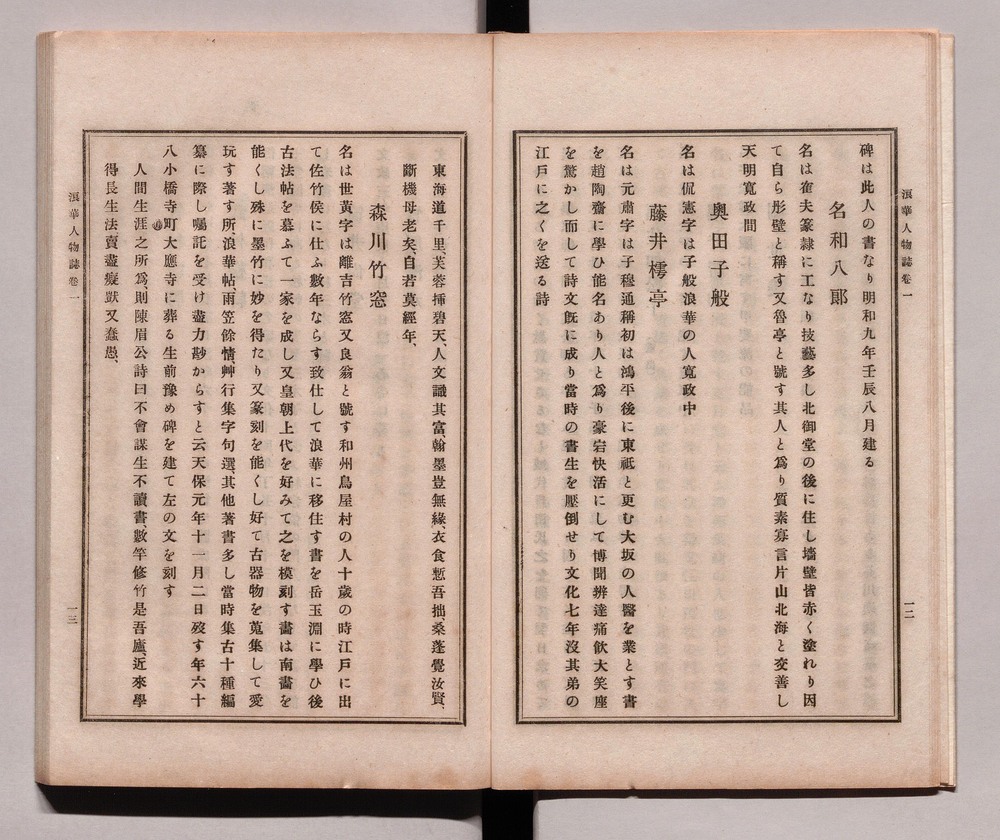 浪華人物誌卷一
一二
碑は此人の書なり明和九年壬辰八月建る
名和八郞
名は隺夫篆隷に工なり技藝多し北御堂の後に住し墻壁皆赤く塗れり因
て自ら彤壁と稱す又魯亭と號す其人と爲り質素寡言片山北海と交善し
天明寬政間
奥田子般
名は侃憲字は子般浪華の人寬政中
藤井樗亭
名は元肅字は子穆通稱初は鴻平後に東祗と更む大坂の人醫を業とす書
を趙陶齋に學ひ能名あり人と爲り豪宕快活にして博聞辨達痛飮大笑座
を驚かし而して詩文旣に成り當時の書生を壓倒せり文化七年沒其弟の
江戶に之くを送る詩
東海道千里芙蓉揷碧天、人文識其富、翰墨豈無緣、衣食慙吾拙、桑蓬覺汝賢、
斷機母老矣、自若莫經年、
森川竹窓
名は世黃字は離吉竹窓又良翁と號す和州鳥屋村の人十歲の時江戶に出
て佐竹侯に仕ふ數年ならす致仕して浪華に移住す書を岳玉淵に學ひ後
古法帖を慕ふて一家を成し又皇朝上代を好みて之を模刻す畵は南畵を
能くし殊に墨竹に妙を得たり又篆刻を能くし好て古器物を蒐集して愛
玩す著す所、浪華帖、雨笠餘情、艸行集字句選、其他著書多し當時集古十種編
纂に際し囑託を受け盡力尠からすと云天保元年十一月二日歿す年六十
八小橋寺町大應寺に葬る生前豫め碑を建て左の文を刻す
人間生涯之所爲、則陳眉公詩曰不會謀生不讀書、數竿修竹是吾廬、近來學
得長生法賣盡癡獃又蠢愚、
浪華人物誌卷一
一三